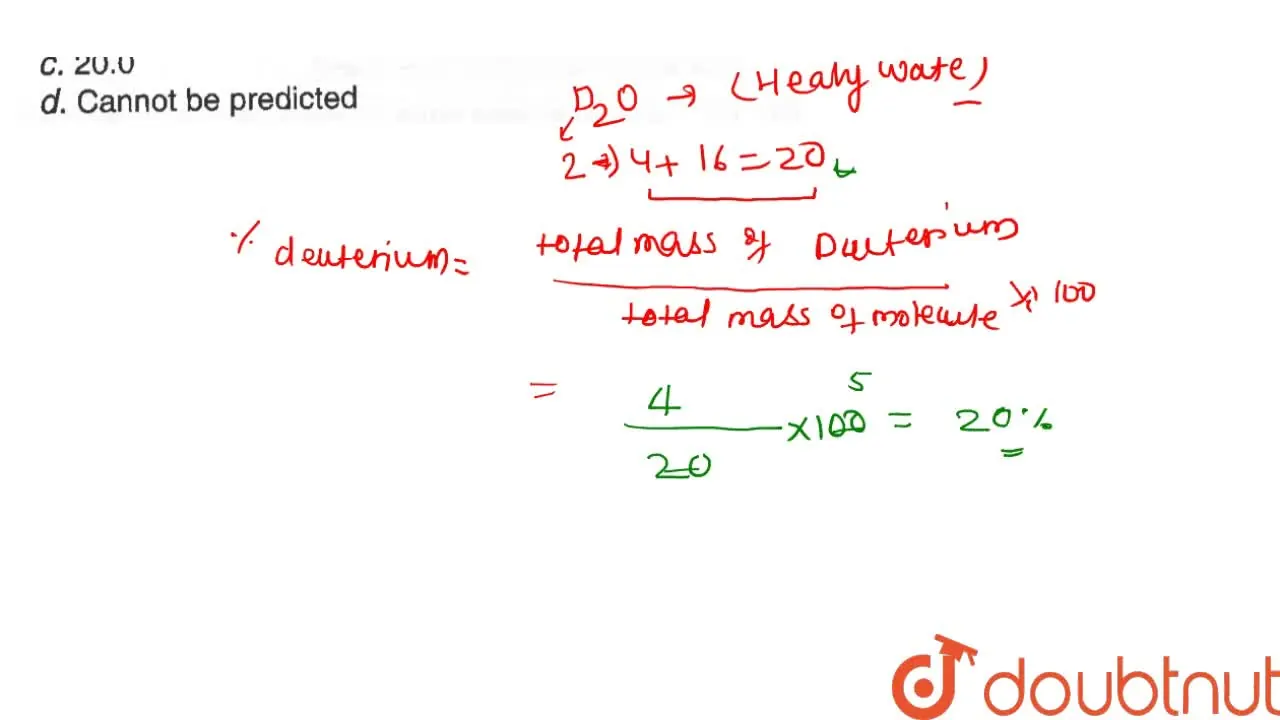 c. 20.0
d. Cannot be predicted
D2O → (Heavy wate)
2 → 4 + 16 = 20
% deuterium = total mass of Deuterium
total mass of molecule × 100
= 4 5
20 × 100 = 20%
doubtnut